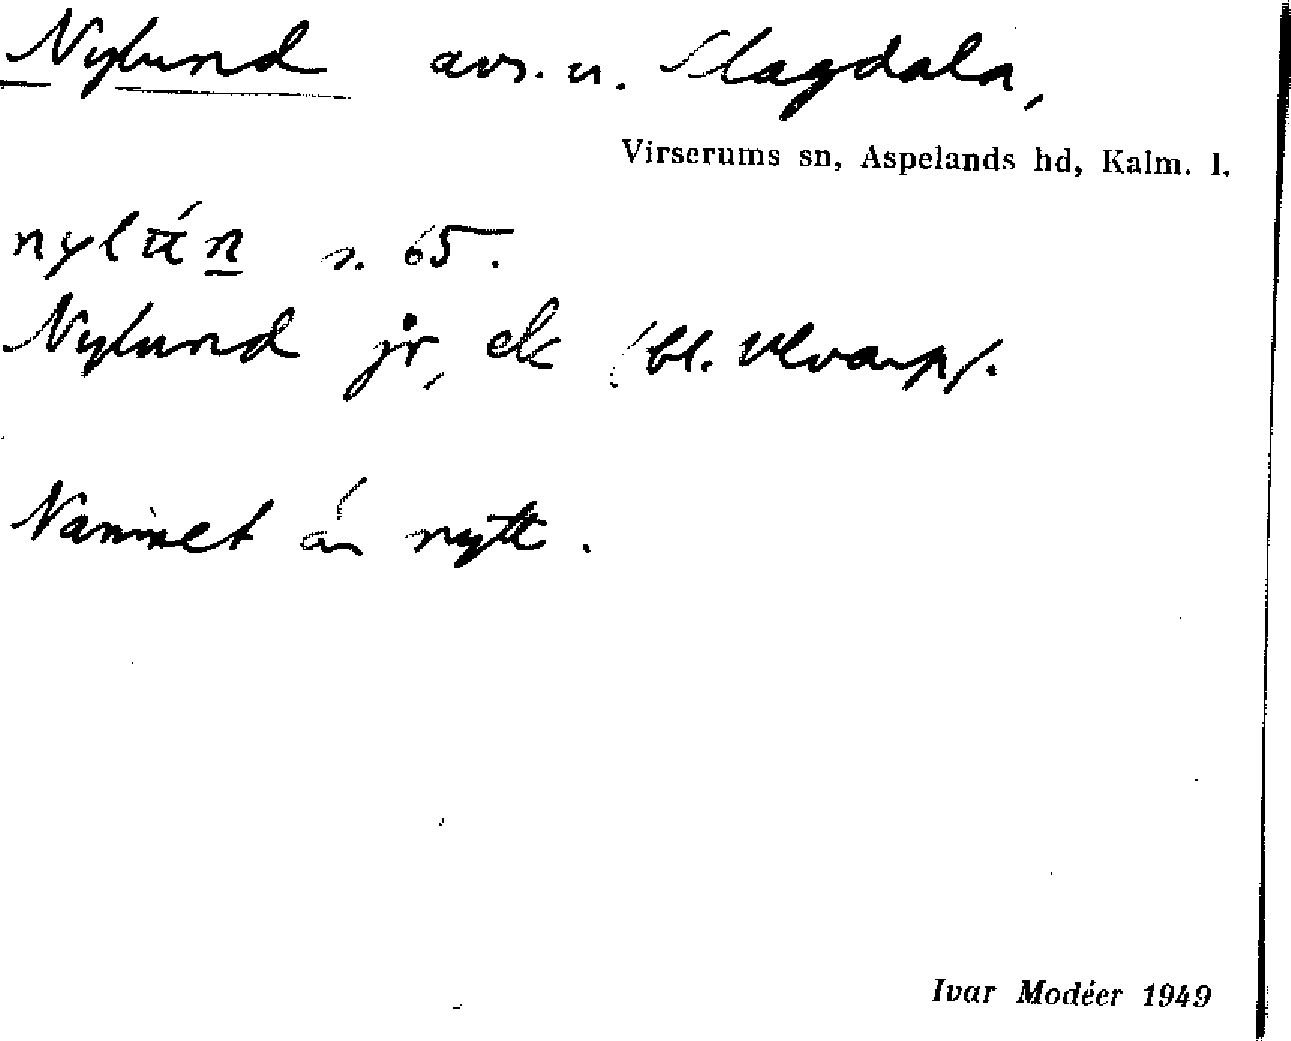 Nylund avs. u. Slagdala,
Virserums sn, Aspelands hd, Kalm. l.
s. 65.
Nylund jr, ek (bl.
Namnet är nytt.
Ivar Modéer 1949